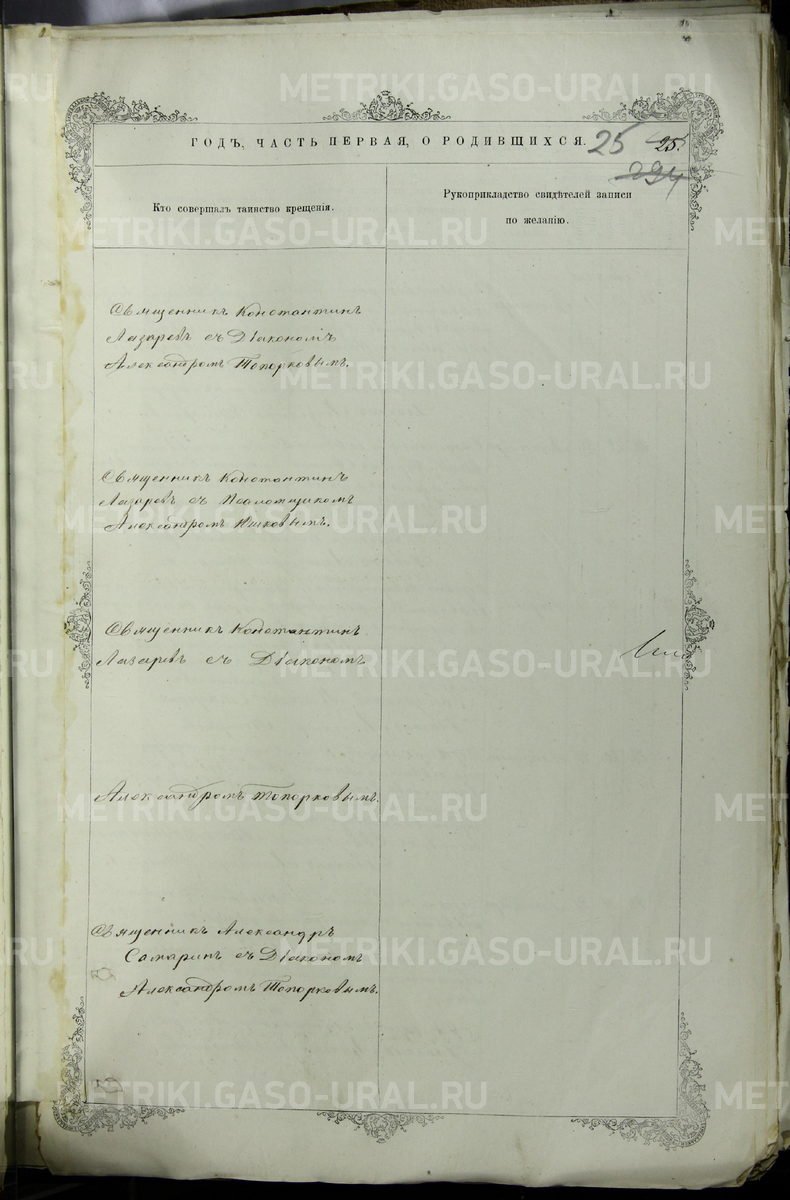 METRIKI.GASO-URAL.RU
ГОДЪ, ЧАСТЬ ПЕРВАЯ, О РОДИВШИХСЯ.
25
25.
294
Кто совершалъ таинство крещенія.
Рукоприкладство свидѣтелей записи
по желанію.
Священникъ Константинъ
Лазаревъ съ Діакономъ
Александромъ Топорковымъ.
Священникъ Константинъ
Лазаревъ съ Псаломщикомъ
Александромъ
Священникъ Константинъ
Лазаревъ съ Діакономъ
Александромъ Топорковымъ.
Священникъ Александръ
Самаринъ съ Діакономъ
Александромъ Топорковымъ.